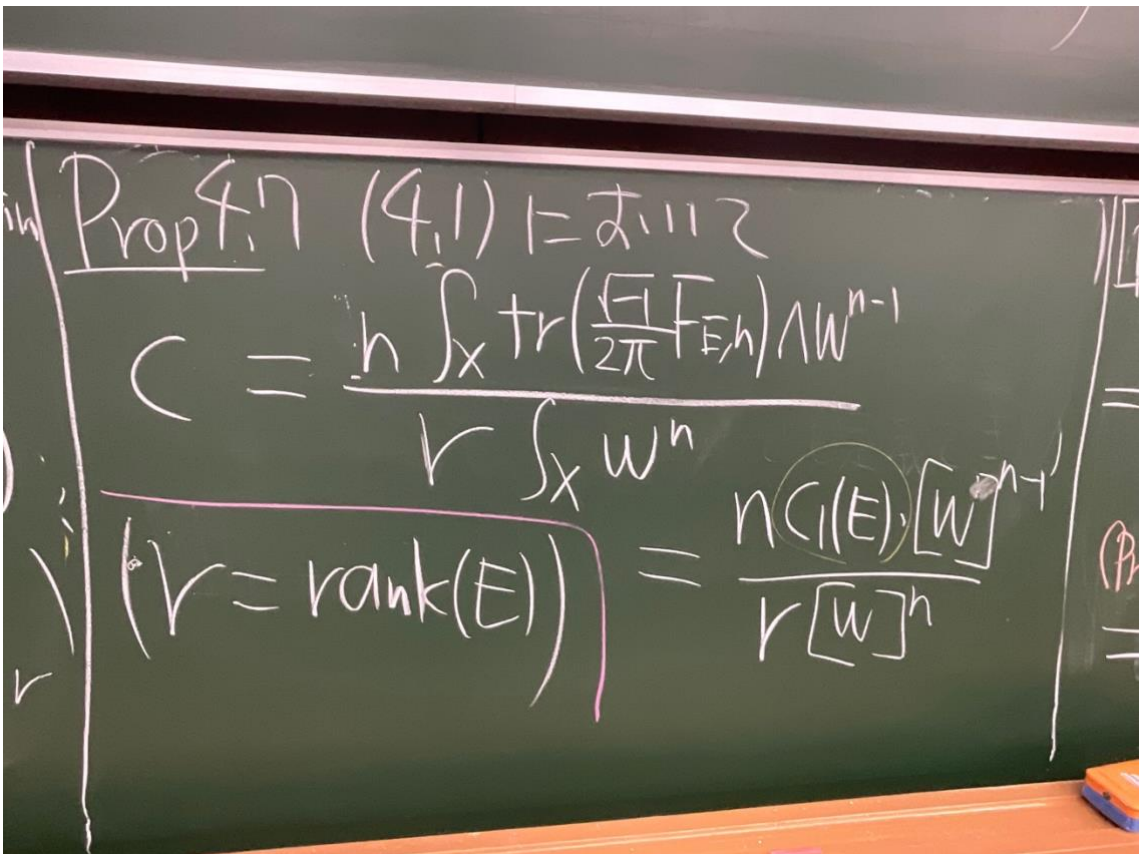 Prop 4.7 (4.1) において
C = \frac{n \int_X tr(\frac{\sqrt{-1}}{2\pi} F_{E,h}) \wedge w^{n-1}}{r \int_X w^n}
(r = rank(E)) = \frac{n C_1(E) \cdot [w]^{n-1}}{r [w]^n}